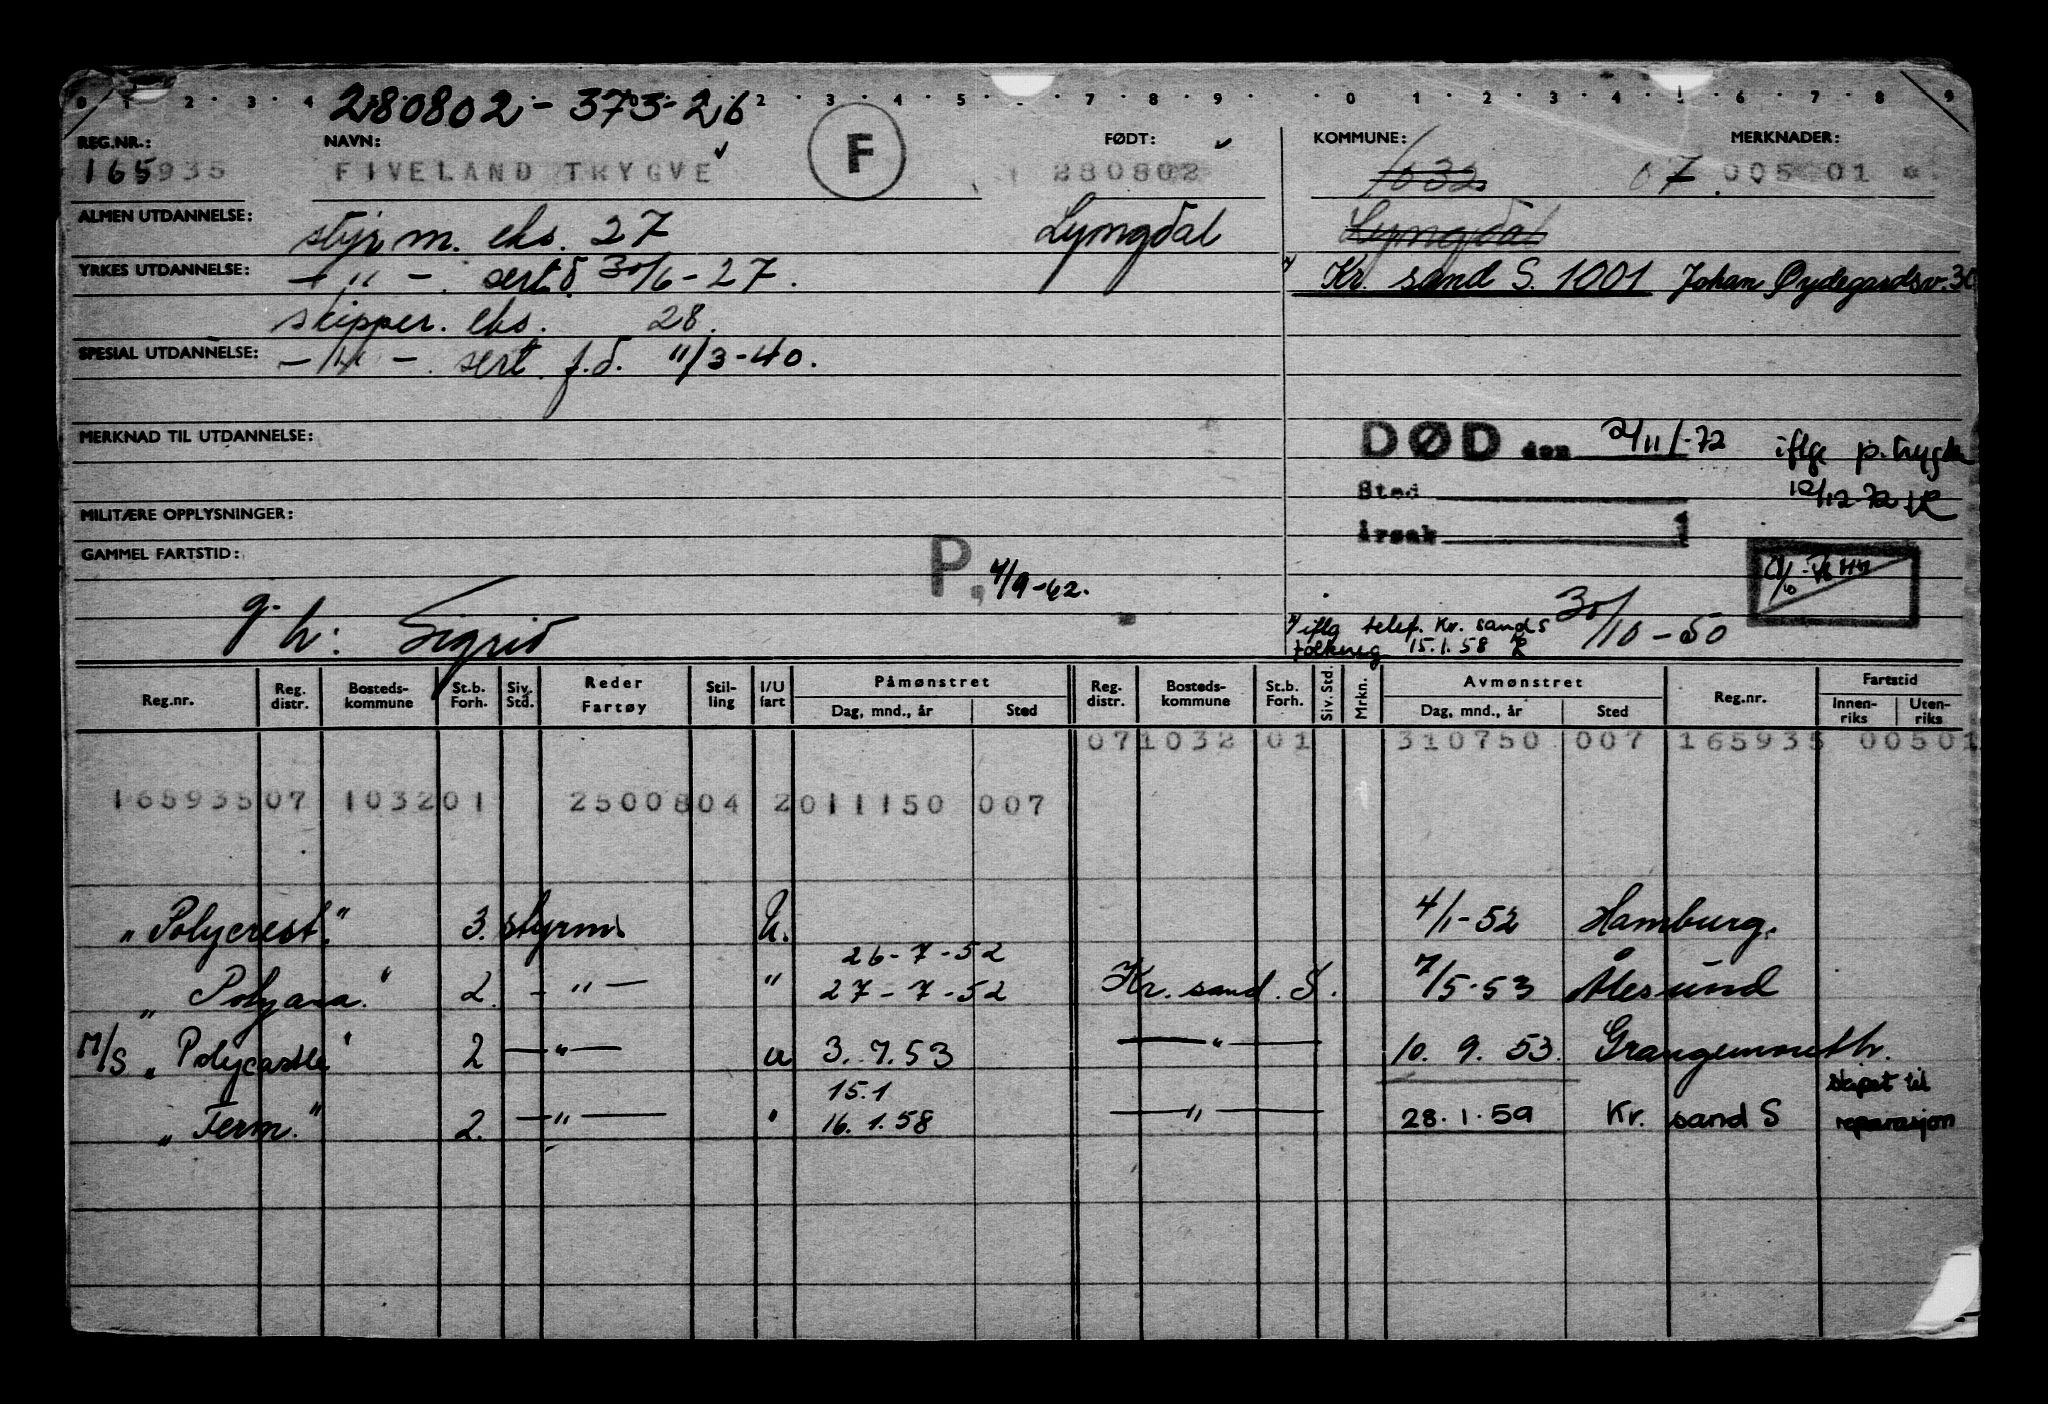 280802 - 373-26
REG.NR.: NAVN: FØDT: KOMMUNE: MERKNADER:
165935 FIVELAND TRYGVE F 280802 1032 07 005 01
ALMEN UTDANNELSE: styrm. eks. 27 Lyngdal Lyngdal
YRKES UTDANNELSE: - " - sert. d. 30/6-27. Kr. sand S. 1001 Johan Øydegardsv. 30
skipper. eks. 28.
SPESIAL UTDANNELSE: - " - sert. f.d. 11/3-40.
MERKNAD TIL UTDANNELSE: DØD den 2/11-72 iflge p.trygden
Sted 12/12-72
MILITÆRE OPPLYSNINGER:
Årsak
GAMMEL FARTSTID: P. 4/9-62.
g. h: Sigrid
iflg telef. Kr. sand S 30/10-50
folkereg 15.1.58
Reg.nr. Reg. distr. Bosteds-kommune St.b. Forh. Siv. Std. Reder Fartøy Stil-ling I/U fart Påmønstret Dag, mnd., år Sted Reg. distr. Bosteds-kommune St.b. Forh. Siv. Std. Mrkn. Avmønstret Dag, mnd., år Sted Reg.nr. Fartstid Innen-riks Uten-riks
071032 01 310750 007 165935 00501
16593507 103201 2500804 2011150 007
"Polycrest." 3. styrm. U. 4/1-52 Hamburg.
26-7-52
"Polyana." 2. - " - " 27-7-52 Kr. sand. S. 7/5-53 Ålesund
M/S "Polycastle" 2 - " - u 3.7.53 - " - 10. 9. 53. Grangemouth.
15.1 skipet til
"Ferm." 2. - " - " 16.1.58 - " - 28.1.59 Kr. sand S reparasjon